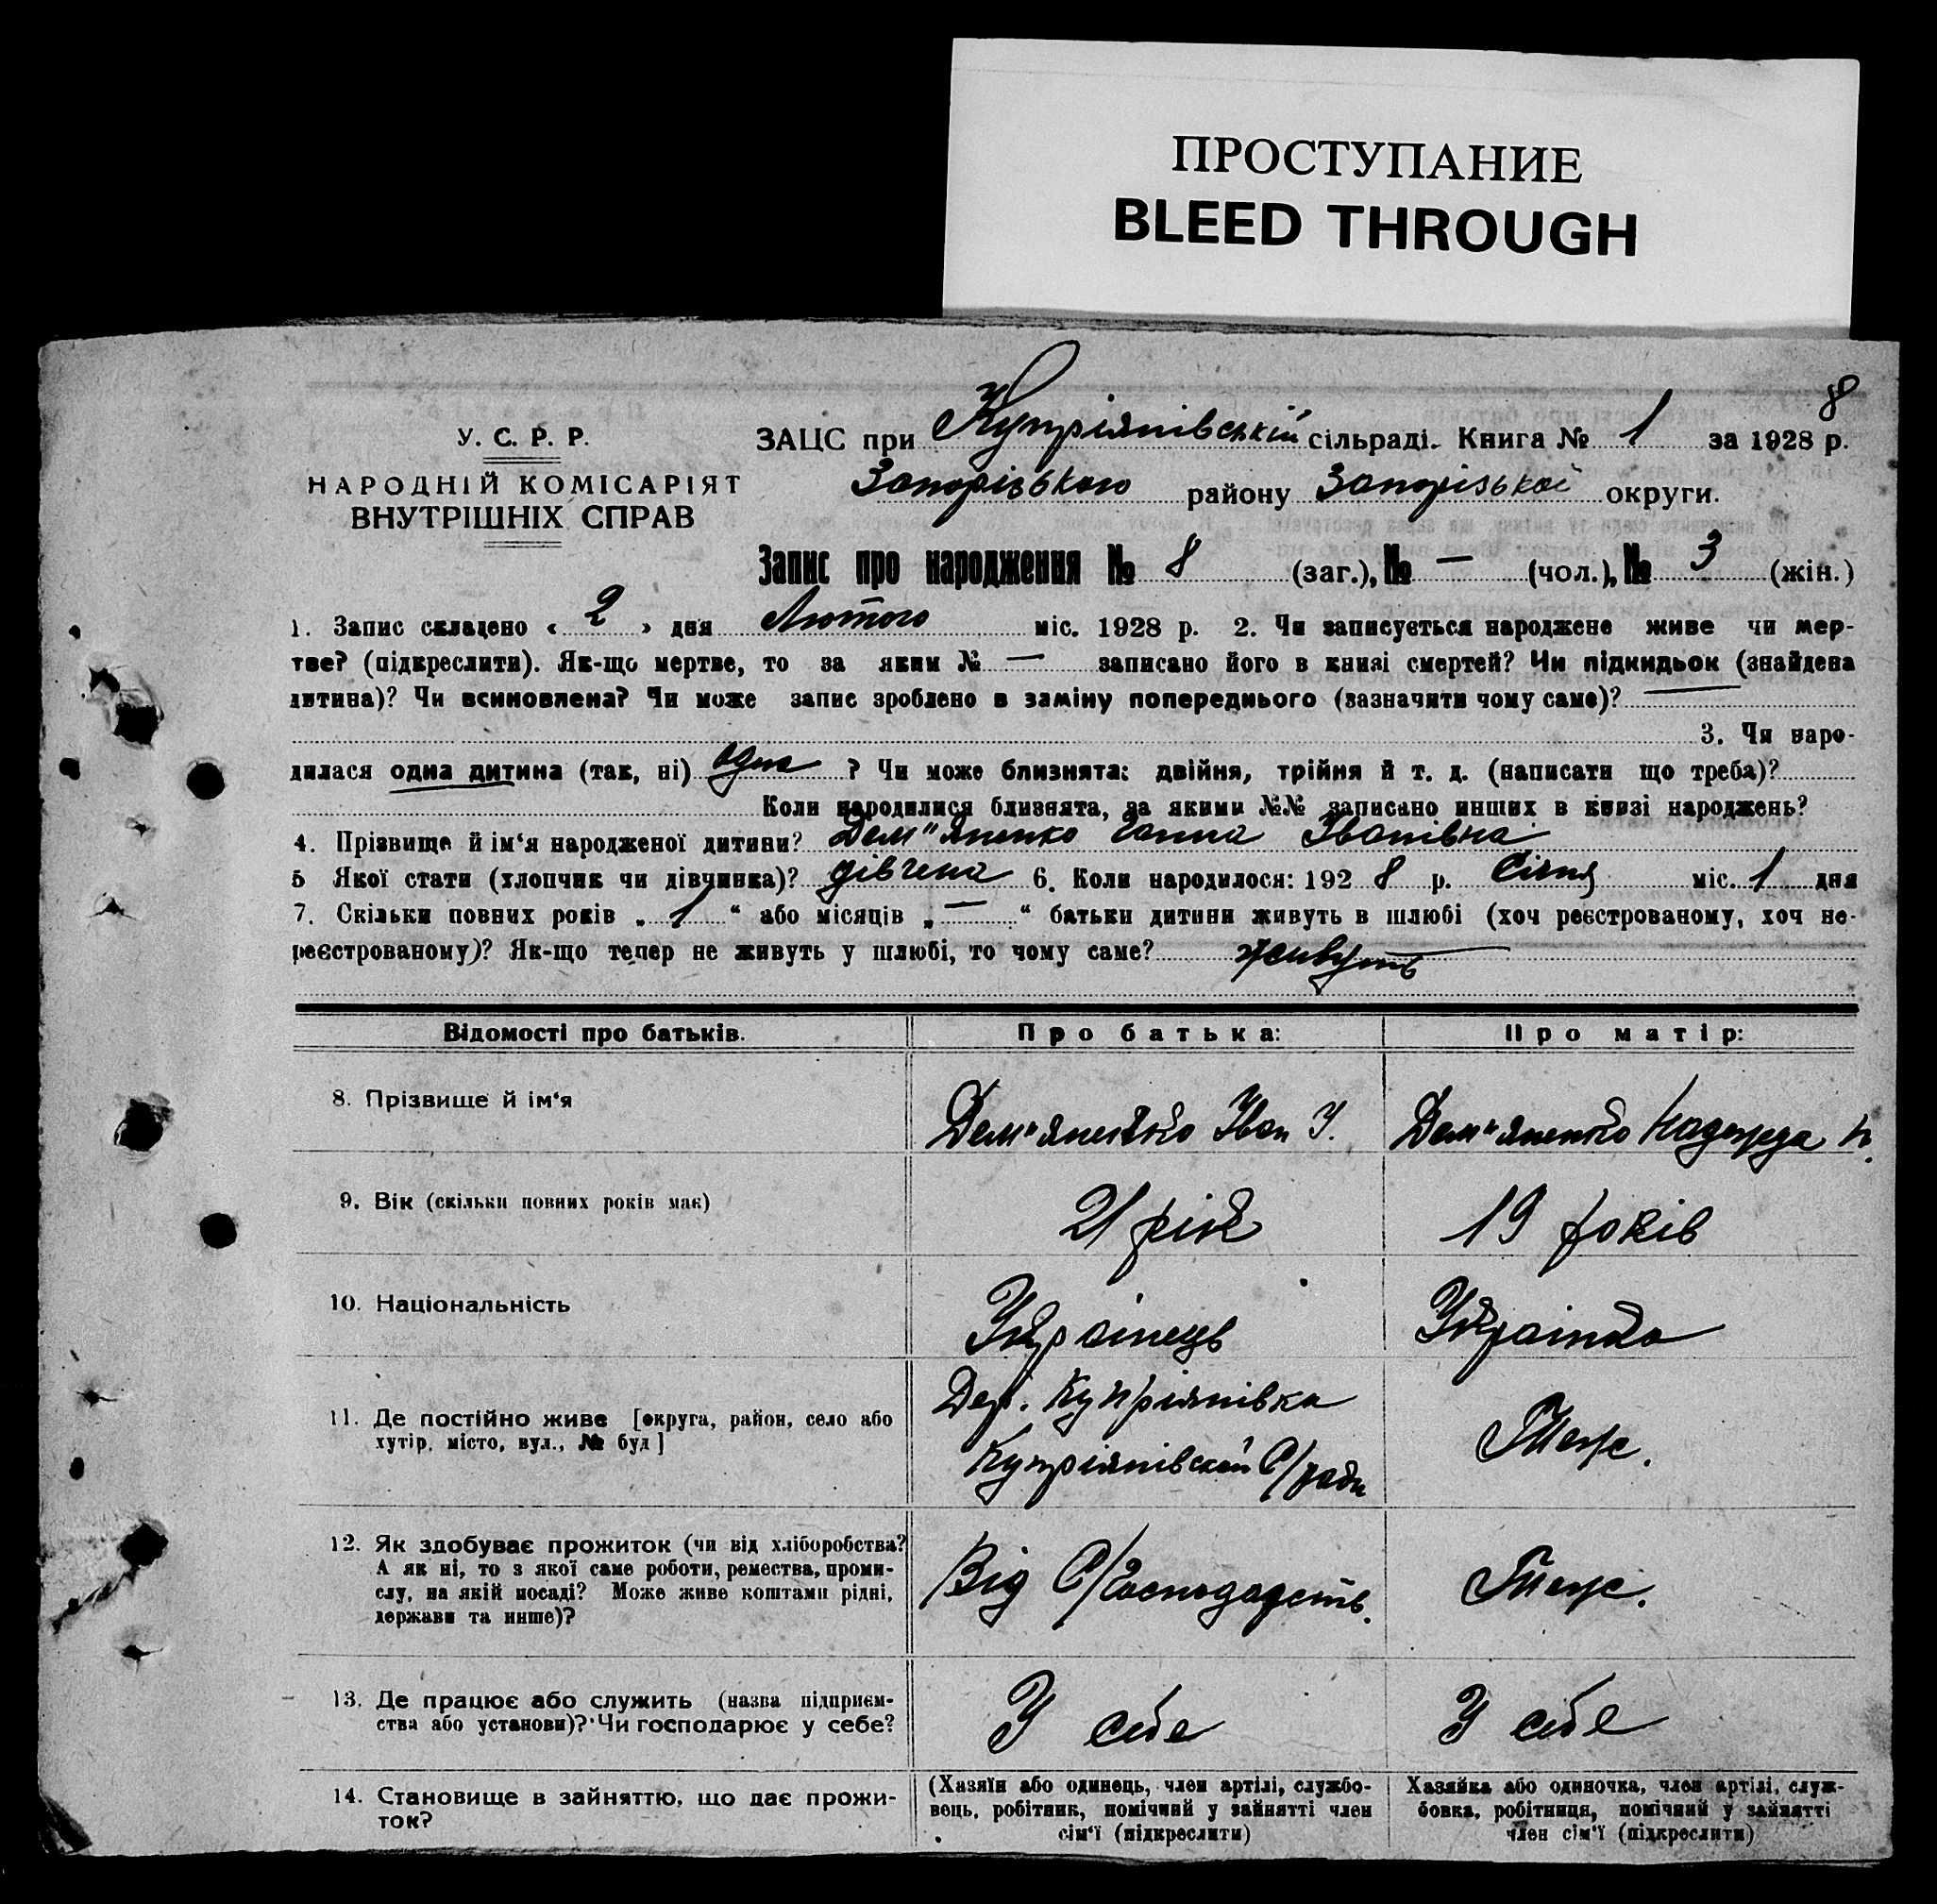 ПРОСТУПАНИЕ
BLEED THROUGH
8
У. С. Р. Р.
НАРОДНІЙ КОМІСАРІЯТ
ВНУТРІШНІХ СПРАВ
ЗАЦС при Купріянівській сільраді. Книга № 1 за 1928 р.
Запорізького району Запорізької округи.
Запис про народження № 8 (заг.), № — (чол.), № 3 (жін.)
1. Запис складено « 2 » дня Лютого міс. 1928 р. 2. Чи записується народжене живе чи мер-
тве? (підкреслити). Як-що мертве, то за яким № — записано його в книзі смертей? Чи підкидьок (знайдена
дитина)? Чи всиновлена? Чи може запис зроблено в заміну попереднього (зазначити чому саме)? —
3. Чи наро-
дилася одна дитина (так, ні) одна ? Чи може близнята: двійня, трійня й т. д. (написати що треба)?
Коли народилися близнята, за якими №№ записано инших в книзі народжень?
4. Прізвище й ім‘я народженої дитини? Дем"яненко Ганна Іванівна
5 Якої статі (хлопчик чи дівчинка)? дівчена 6. Коли народилося: 192 8 р. Січня міс. 1 дня
7. Скільки повних років „ 1 “ або місяців „ — “ батьки дитини живуть в шлюбі (хоч реєстрованому, хоч не-
реєстрованому)? Як-що тепер не живуть у шлюбі, то чому саме? живуть
Відомості про батьків. Про батька: Про матір:
8. Прізвище й ім‘я Дем"яненко Іван І. Дем"яненко Надежда Н.
9. Вік (скільки повних років має) 21 рік 19 років
10. Національність Українець Українка
11. Де постійно живе [округа, район, село або
хутір, місто, вул., № буд] Дер. Купріянівка
Купріянівской С/ради Теж.
12. Як здобуває прожиток (чи від хліборобства?
А як ні, то з якої саме роботи, ремества, проми-
слу, на якій посаді? Може живе коштами рідні,
держави та инше)? Від С/Господарств. Теж.
13. Де працює або служить (назва підприєм-
ства або установи)? Чи господарює у себе? У себе У себе
14. Становище в зайняттю, що дає прожи-
ток?
(Хазяїн або одинець, член артілі, службо-
вець, робітник, помічний у зайнятті член
сім‘ї (підкреслити)
Хазяйка або одиночка, член артілі, служ-
бовка, робітниця, помічний у зайнятті
член сім‘ї (підкреслити)